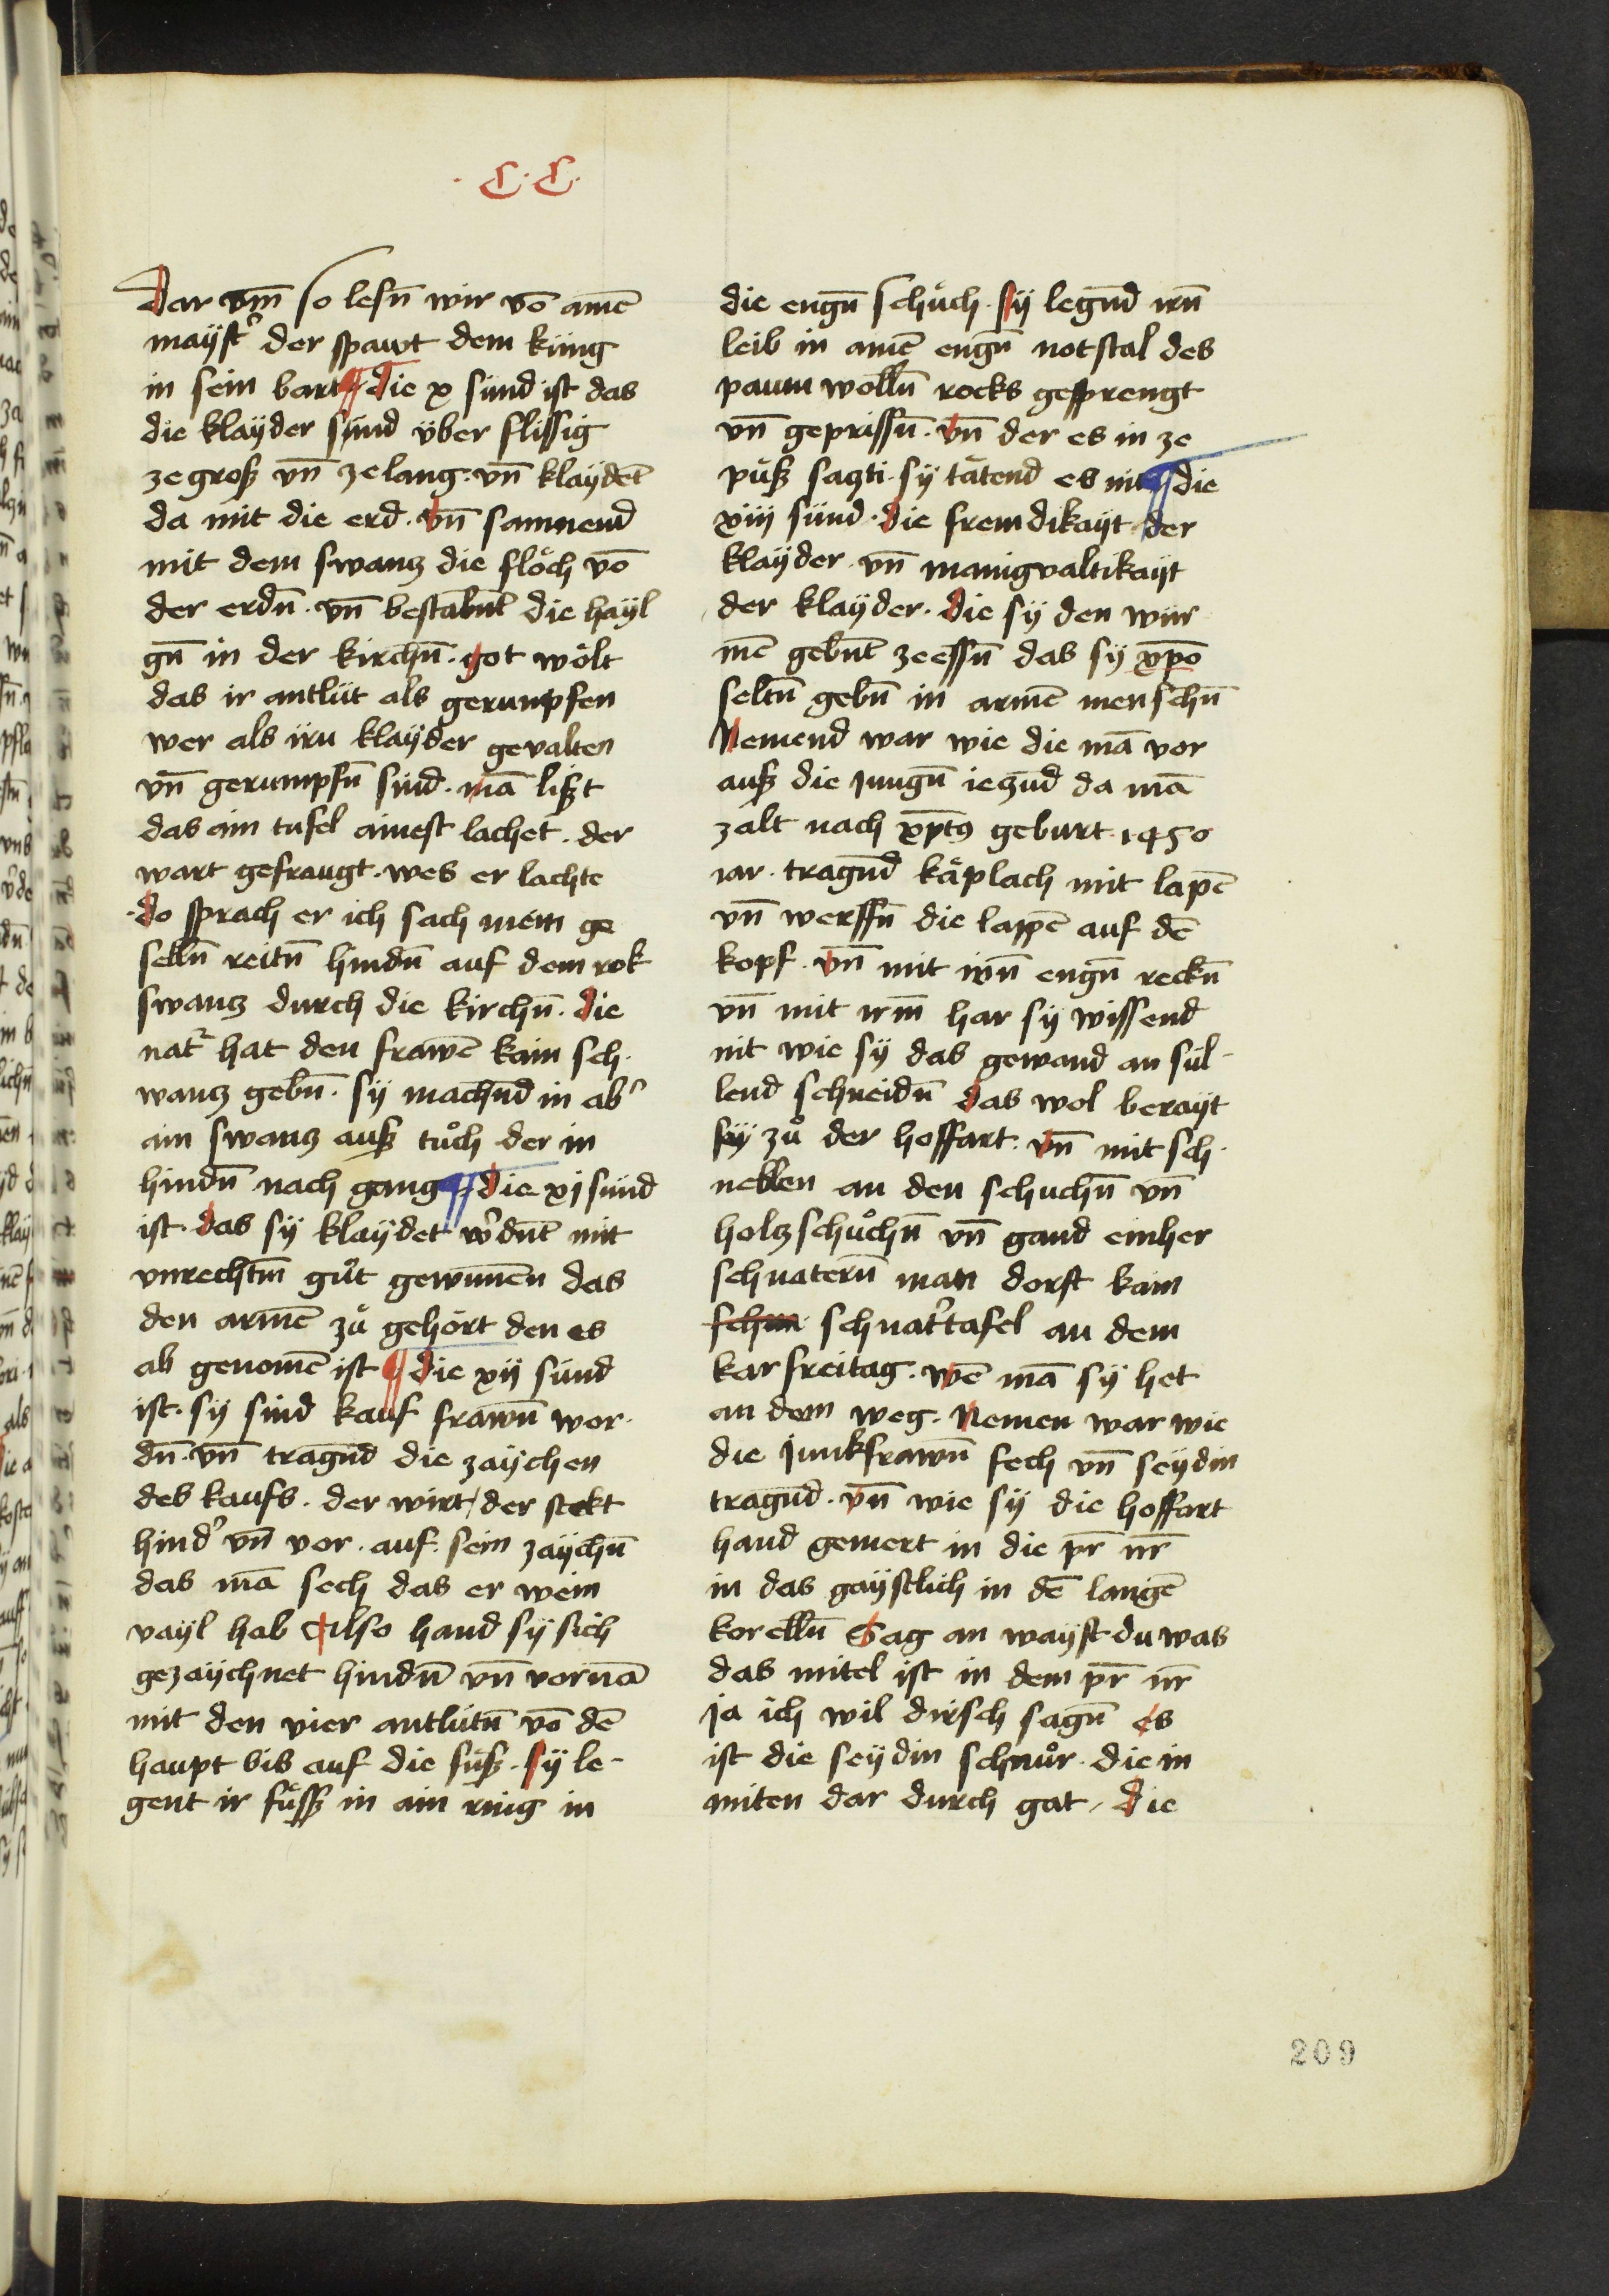 .C.C.
Dar vm̄ so lesn̄ wir vō ainē
maystˀ der spawt dem küng
in sein bart ¶ Die x sünd ist das
die klayder sünd über flissig
ze groß vn̄ ze lang · vn̄ klaydēt
da mit die erd · vn̄ samnend
mit dem swantz die flöch vō
der erdn̄ · vn̄ bestabn̄t die hayl
gn̄ in der kirchn̄ · got wölt
das ir antlüt als gerumpfen
wer als irn klayder gevalten
vn̄ gerumpfn̄ sind · mā lißt
das ain tufel ainest lachet · der
wart gefraugt · wes er lachte
· do sprach er ich sach mein ge
selln̄ reitn̄ hindn̄ auf dem rok
swantz durch die kirchn̄ · die
natˀ hat den frawē kain sch·
wantz gebn̄ · sy machn̄d in abˀ
ain swantz auß tůch der in
hindn̄ nach gang ¶ die xj sünd
ist · das sy klaydet wˀdn̄t mit
vnrechtm̄ gůt gewunnēn das
den armē zů gehört den es
ab genomē ist ¶ die xij sünd
ist · sy sind kauf frawn̄ wor·
dn̄ · vn̄ tragn̄d die zaychen
des kaufs · der wirt / der stekt
hindˀ vn̄ vor · auf · sein zaychn̄
das mā sech das er wein
vayl hab Also hand sy sich
gezaychnet hindn̄ vn̄ vornā
mit den vier antlütn̄ vō dē
haupt bis auf die füß · sy le-
gent ir füss in ain ring in
die engn̄ schůch · sy legn̄d irn̄
leib in ainē engn̄ notstal des
paum wolln̄ rocks gesprengt
vn̄ geprissn̄ · vn̄ der es in ze
půß sagti · sy tätend es nit ¶ die
xiij sünd · die fremdikayt der
klayder · vn̄ manigvaltikayt
der klayder · die sy den wür
mē gebn̄t ze essn̄ das sy xp̄o
seltn̄ gebn̄ in armē menschn̄
Nemend war wie die mā vor
auß die jungn̄ ietzūd da mā
zalt nach xp̄ts geburt · 1450
iar · tragn̄d käplach mit lapē
vn̄ werffn̄ die lappē auf dē
kopf · vn̄ mit irn̄ engn̄ reckn̄
vn̄ mit irm̄ har sy wissend
nit wie sy das gewand an sül-
lend schneidn̄ das wol berayt
sy zů der hoffart · vn̄ mit sch·
neblen an den schuchn̄ vn̄
holtzschůchn̄ vn̄ gand einher
schnatern̄ man dorft kain
schn schnatˀtafel an dem
karfreitag · wē mā sy het
an dem weg · Nemen war wie
die junkfrawn̄ fech vn̄ seydin
tragn̄d · vn̄ wie sy die hoffart
hand gemert in die pr̄ nr̄
in das gaystlich in dē langē
korelln̄ Sag an wayst du was
das mitel ist in dem pr̄ nr̄
ja ich wil dirsch sagn̄ es
ist die seydin schnůr · die in
miten dar durch gat / die
209